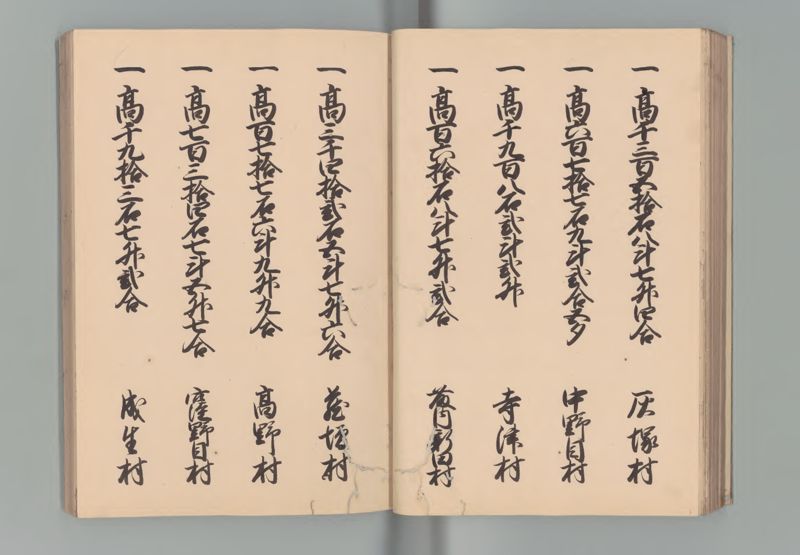 一高千三百五拾石八斗七升四合 灰塚村
一高六百七拾七石九斗弐合五夕 中野目村
一高千九百八石弐斗弐升 寺津村
一高百六拾石八斗七升弐合 新田村
一高三千四拾弐石五斗七升六合 蔵増村
一高百七拾七石六斗九升九合 高野村
一高七百三拾四石七斗五升七合 窪野目村
一高千九拾三石七升弐合 成生村